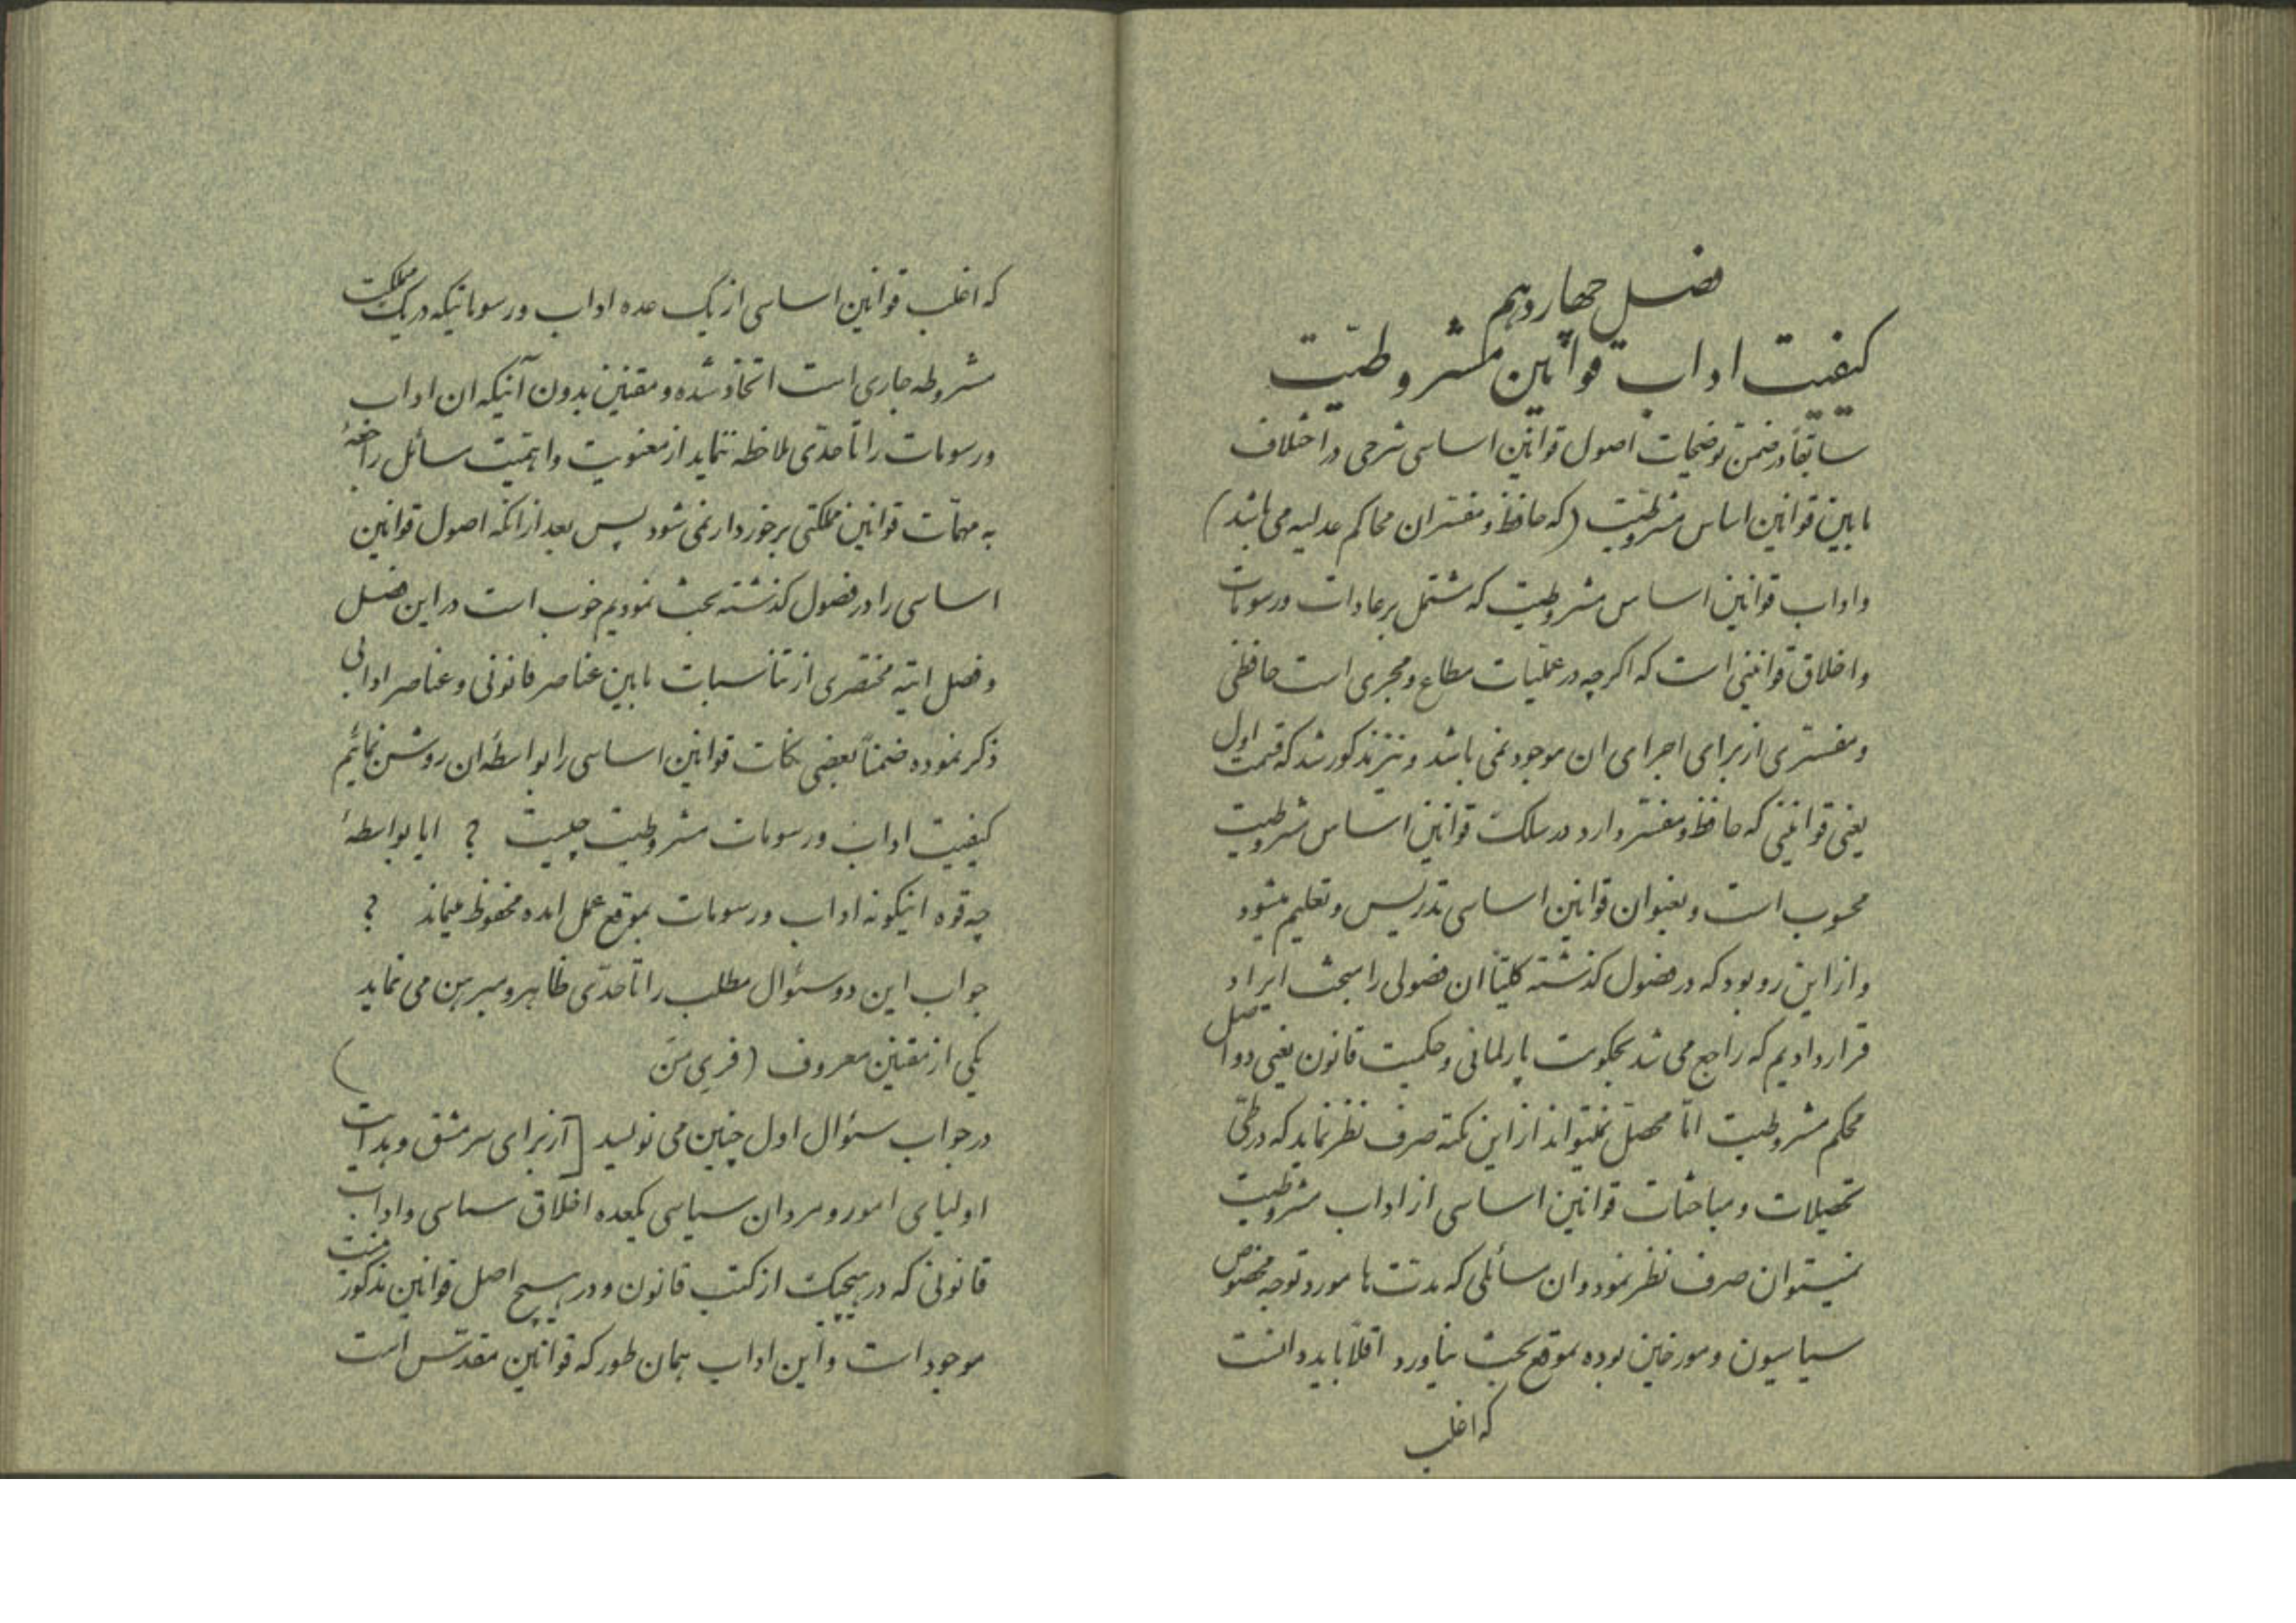 فصل چهاردهم
کیفیت اداب قوانین مشروطیّت
سابقاً در ضمن توضیحات اصول قوانین اساسی شرحی در اختلاف
مابین قوانین اساس مشروطیّت (که حافظ و مفسران محاکم عدلیه می باشد)
و اداب قوانین اساس مشروطیت که مشتمل بر عادات و رسومات
و اخلاق قوانینی است که اکرچه در عملیات مطاع و مجری است حافظی
و مفسّری از برای اجرای ان موجود نمی باشد و نیز مذکور شد که قسمت اول
یعنی قوانینی که حافظ و مفسّر دارد در سلک قوانین اساس مشروطیت
محسوب است و بعنوان قوانین اساسی تدریس و تعلیم میشود
و از این رو بود که در فصول کذشته کلیتاً ان فصولی را مبحث ایراد
قرار دادیم که راجع می شد بحکومت پارلمانی و حکمیت قانون یعنی دو اصل
محکم مشروطیت امّا محصّل نمیتواند از این نکته صرف نظر نماید که در طیّ
تحصیلات و مباحثات قوانین اساسی از اداب مشروطیت
نمیتوان صرف نظر نمود و ان مسائلی که مدت ها مورد توجه مخصوص
سیاسیون و مورخین بوده بموقع بحث نیاورد اقلاً باید دانست
که اغلب
که اغلب قوانین اساسی از یک عده اداب و رسوماتیکه در یک مملکت
مشروطه جاری است اتخاذ شده و مقنّین بدون آنیکه ان اداب
و رسومات را تا حدّی ملاحظه نماید از معنویت و اهمّیت مسائل راجعهٔ
به مهمّات قوانین مملکتی برخوردار نمی شود پس بعد از انکه اصول قوانین
اساسی را در فصول کذشته بحث نمودیم خوب است در این فصل
و فصل اتیه مختصری از تناسبات مابین عناصر قانونی و عناصر ادابی
ذکر نموده ضمناً بعضی نکات قوانین اساسی را بواسطه ان روشن نمائیم
کیفیت اداب و رسومات مشروطیت چیست ؟ ایا بواسطهٔ
چه قوه اینکونه اداب و رسومات بموقع عمل امده محفوظ میماند ؟
جواب این دو سئوال مطلب را تا حدّی ظاهر و مبرهن می نماید
یکی از مقنّین معروف (فری مَن )
در جواب سئوال اول چنین می نویسد [از برای سرمشق و هدایت
اولیای امور و مردان سیاسی یکعده اخلاق سیاسی و اداب
قانونی که در هیچیک از کتب قانون و در هیچ اصل قوانین مذکور نیست
موجود است و این اداب همان طور که قوانین مقدّس است